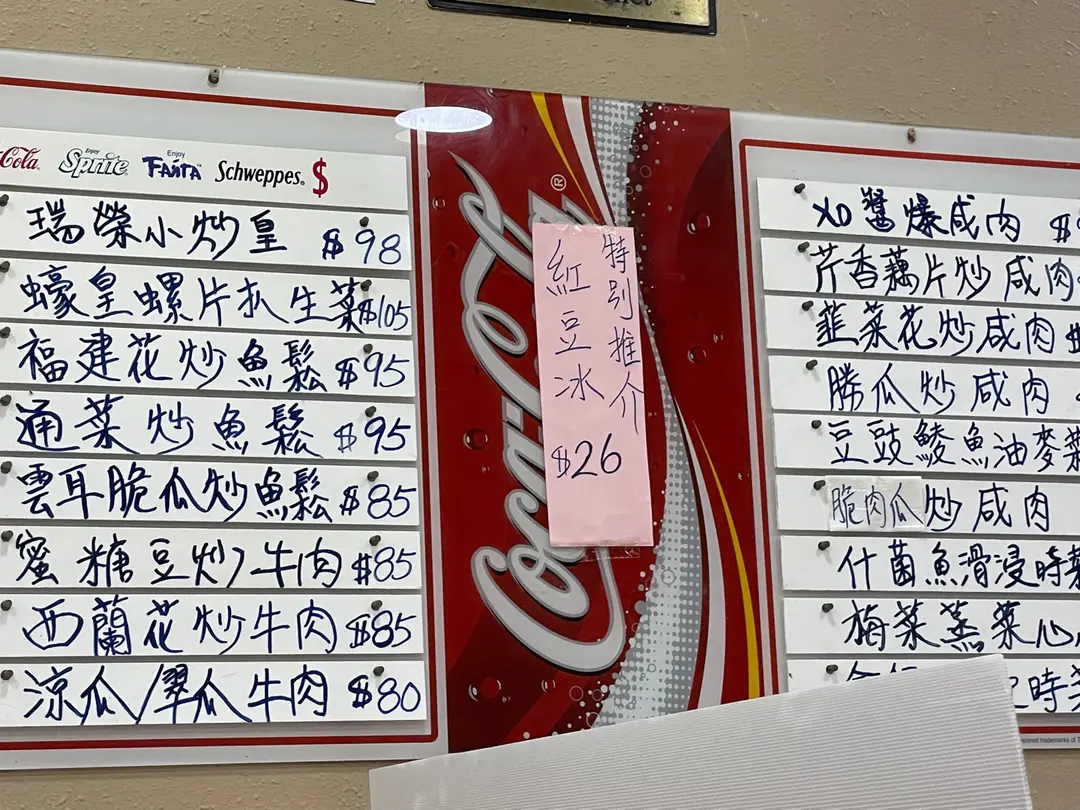 Cola
Enjoy
Sprite
Enjoy
FANTA
Schweppes
$
瑞榮小炒皇 $98
蠔皇螺片扒生菜$105
福建花炒魚鬆 $95
通菜炒魚鬆 $95
雲耳脆瓜炒魚鬆 $85
蜜糖豆炒牛肉 $85
西蘭花炒牛肉 $85
涼瓜/翠瓜牛肉 $80
Coca-Cola
®
特別推介
紅豆冰
$26
XO醬爆咸肉
芹香藕片炒咸肉
韮菜花炒咸肉
勝瓜炒咸肉
豆豉鯪魚油麥菜
脆肉瓜炒咸肉
什菌魚滑浸時菜
梅菜蒸菜心
時菜
trademarks of